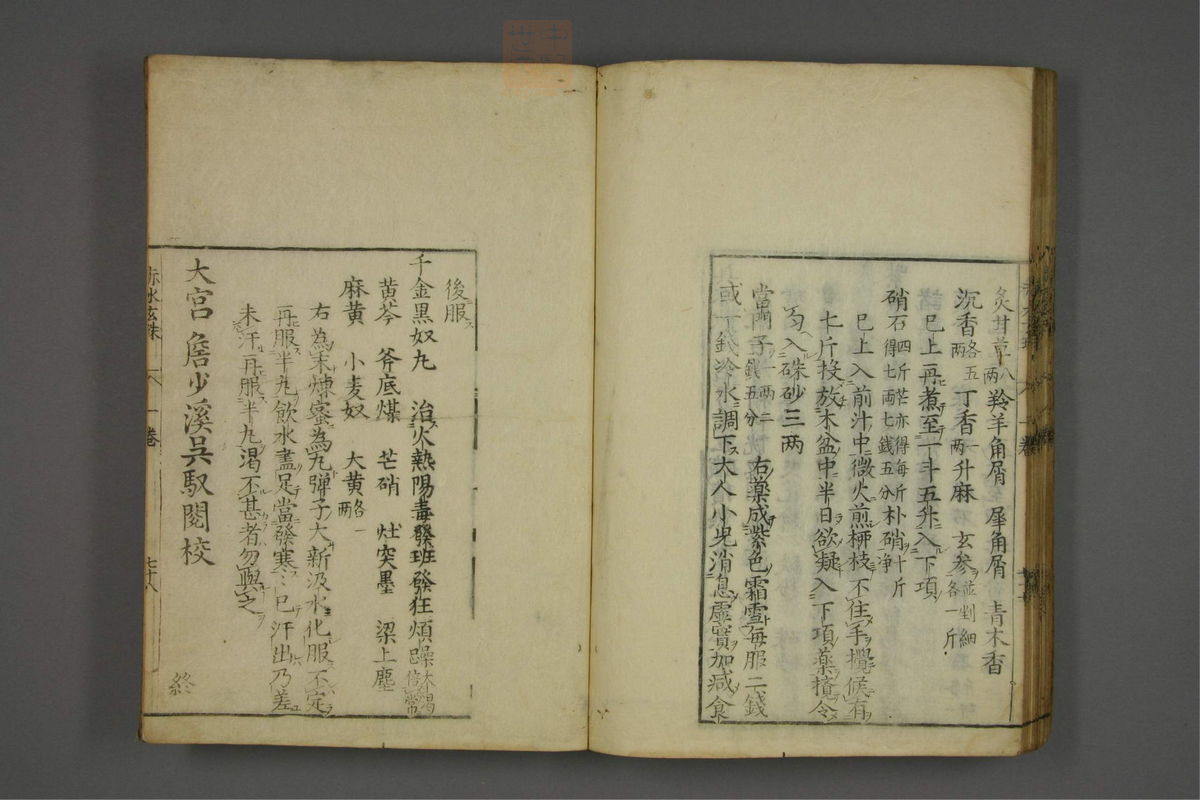 炙甘草八两 羚羊角屑 犀角屑 青木香
沉香各五两 丁香一两 升麻 玄参並剉細各一斤
已上再煮至一斗五升入下項
硝石四斤芒亦得每斤朴硝十斤得七两七錢五分净
已上入前汁中微火煎栁枝不住手攪候有
七斤投放木盆中半日欲凝入下項藥攪令
匀入硃砂三两
當門子一两二錢五分 右藥成紫色霜雪每服二錢
或一錢冷水調下大人小児消息虚實加减食
後服
千金黒奴丸 治火熱陽毒發班發狂煩躁大渴倍常
黄芩 釜底煤 芒硝 灶突墨 梁上塵
麻黄 小麦奴 大黄各一两
右為末煉蜜為丸彈子大新汲水化服不定
再服半丸飲水盡足當發寒寒已汗出乃差
未汗再服半丸渴不甚者勿與之
大宫詹少溪吳馭閱校
終
赤水玄珠 一卷 七十八